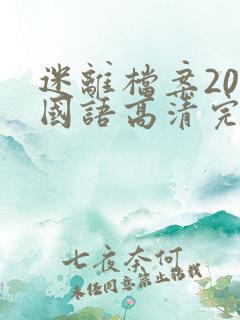 迷離檔案20
國語高清完
七夜奈何
未经同意禁止转载